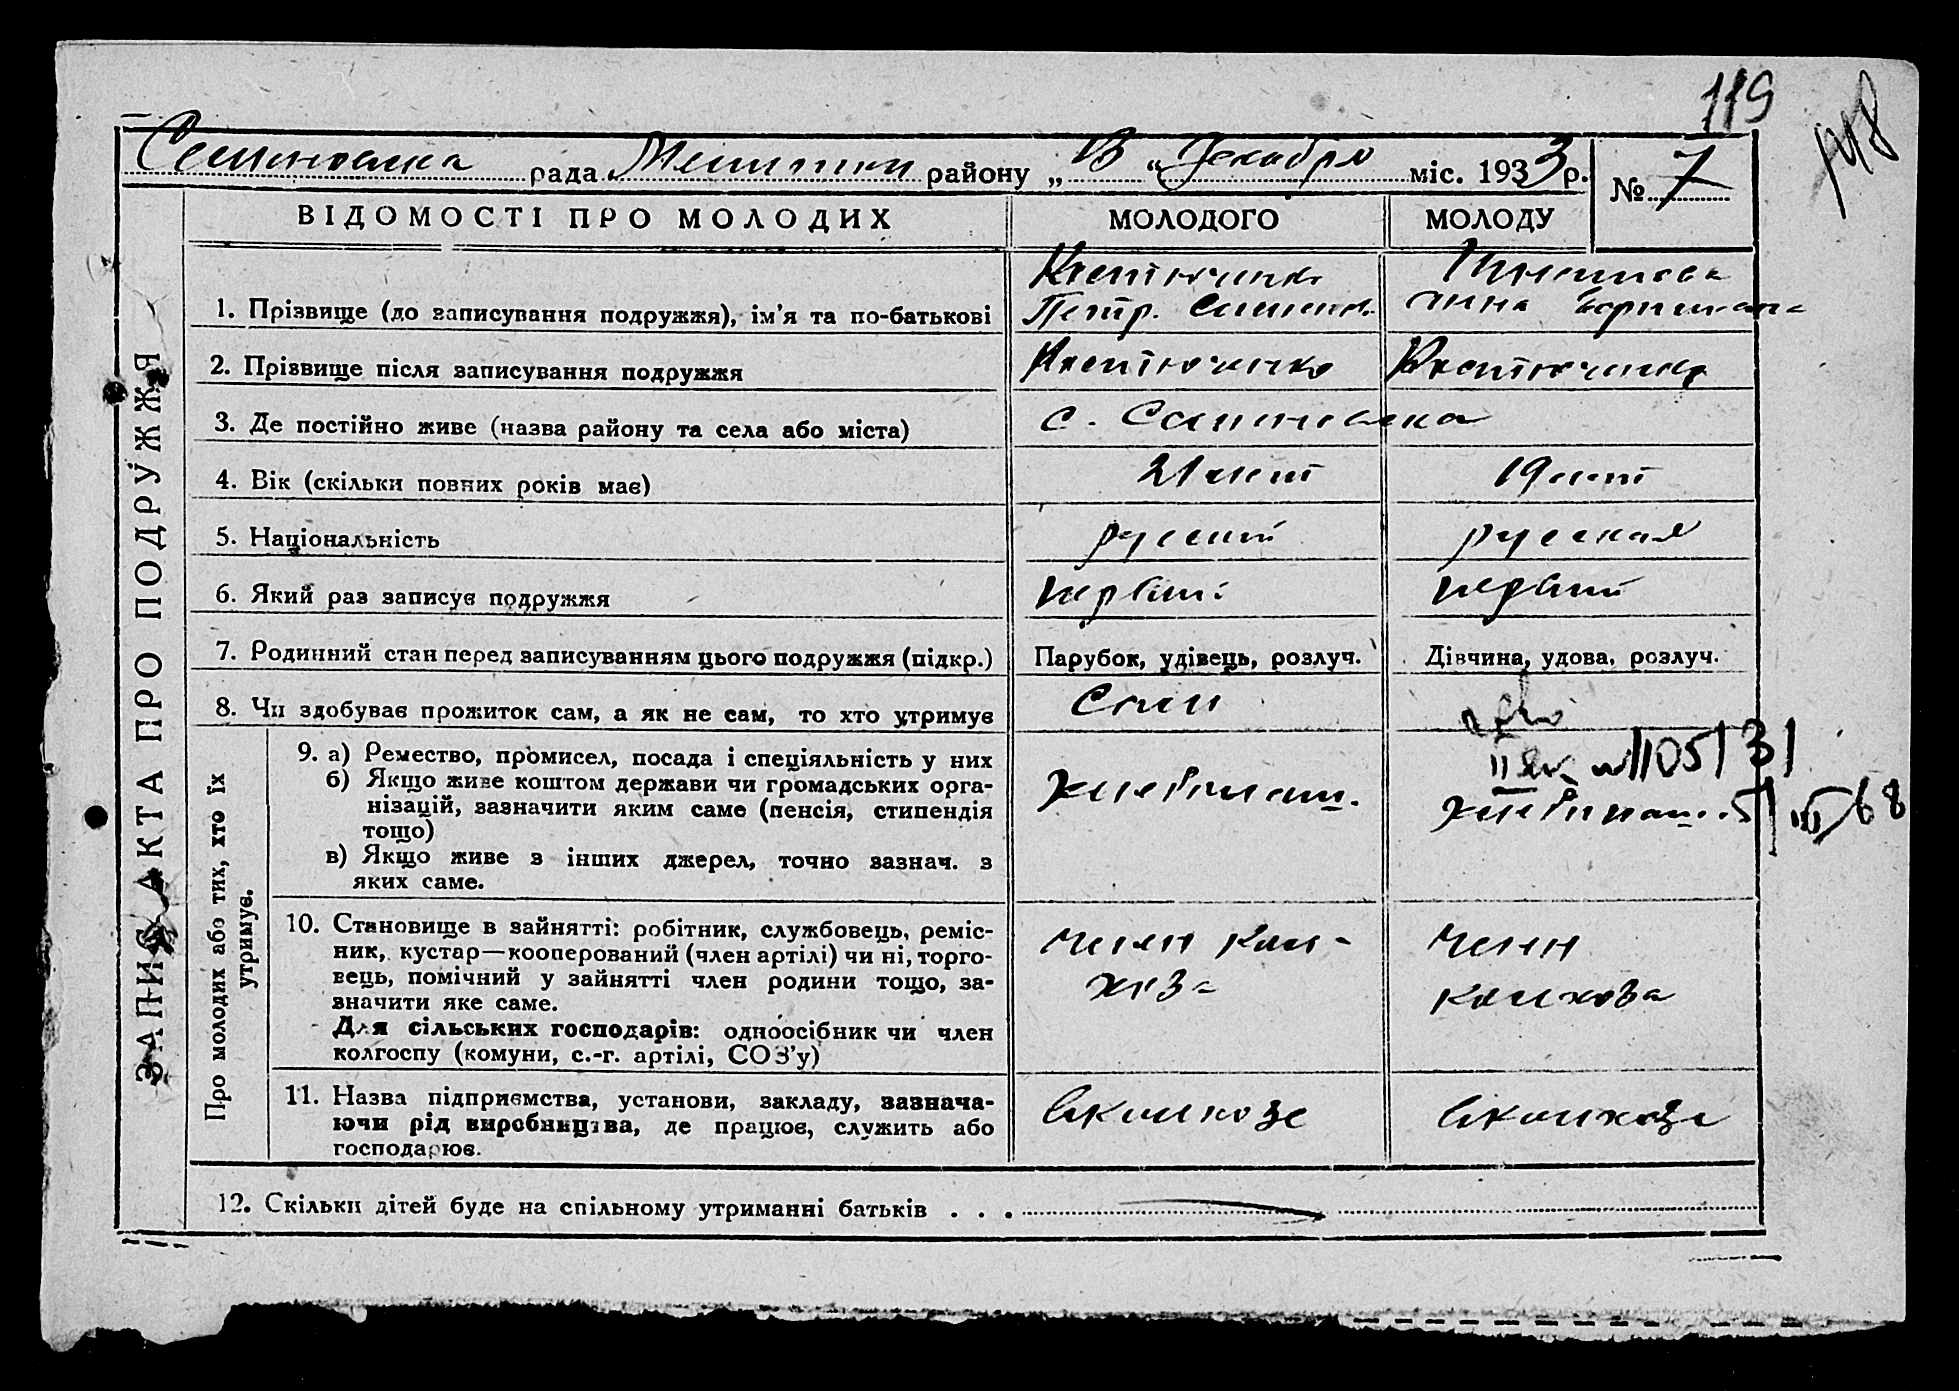 119
148
рада района „ “ Декабря міс. 1933 р.
№ 7
ЗАПИС АКТА ПРО ПОДРУЖЖЯ
ВІДОМОСТІ ПРО МОЛОДИХ
МОЛОДОГО
МОЛОДУ
1. Прізвище (до записування подружжя), ім'я та по-батькові
Костюченко
Петр.
2. Прізвище після записування подружжя
Костюченко
Костюченко
3. Де постійно живе (назва району та села або міста)
с.
4. Вік (скільки повних років має)
21 лет
19 лет
5. Національність
русский
русская
6. Який раз записує подружжя
первый
первый
7. Родинний стан перед записуванням цього подружжя (підкр.)
Парубок, удівець, розлуч.
Дівчина, удова, розлуч.
8. Чи здобуває прожиток сам, а як не сам, то хто утримує
Сам
Про молодих або тих, хто їх утримує.
9. а) Ремество, промисел, посада і спеціяльність у них
б) Якщо живе коштом держави чи громадських орга-
нізацій, зазначити яким саме (пенсія, стипендія
тощо)
в) Якщо живе з інших джерел, точно зазнач. з
яких саме.
хлебопаш.
хлебопаш.
10. Становище в зайнятті: робітник, службовець, реміс-
ник, кустар—кооперований (член артілі) чи ні, торго-
вець, помічний у зайнятті член родини тощо, за-
значити яке саме.
Для сільських господарів: одноосібник чи член
колгоспу (комуни, с.-г. артілі, СОЗ'у)
член кол-
хоза
член
колхоза
11. Назва підприємства, установи, закладу, зазнача-
ючи рід виробництва, де працює, служить або
господарює.
в колхозе
в колхозе
12. Скільки дітей буде на спільному утриманні батьків . . .